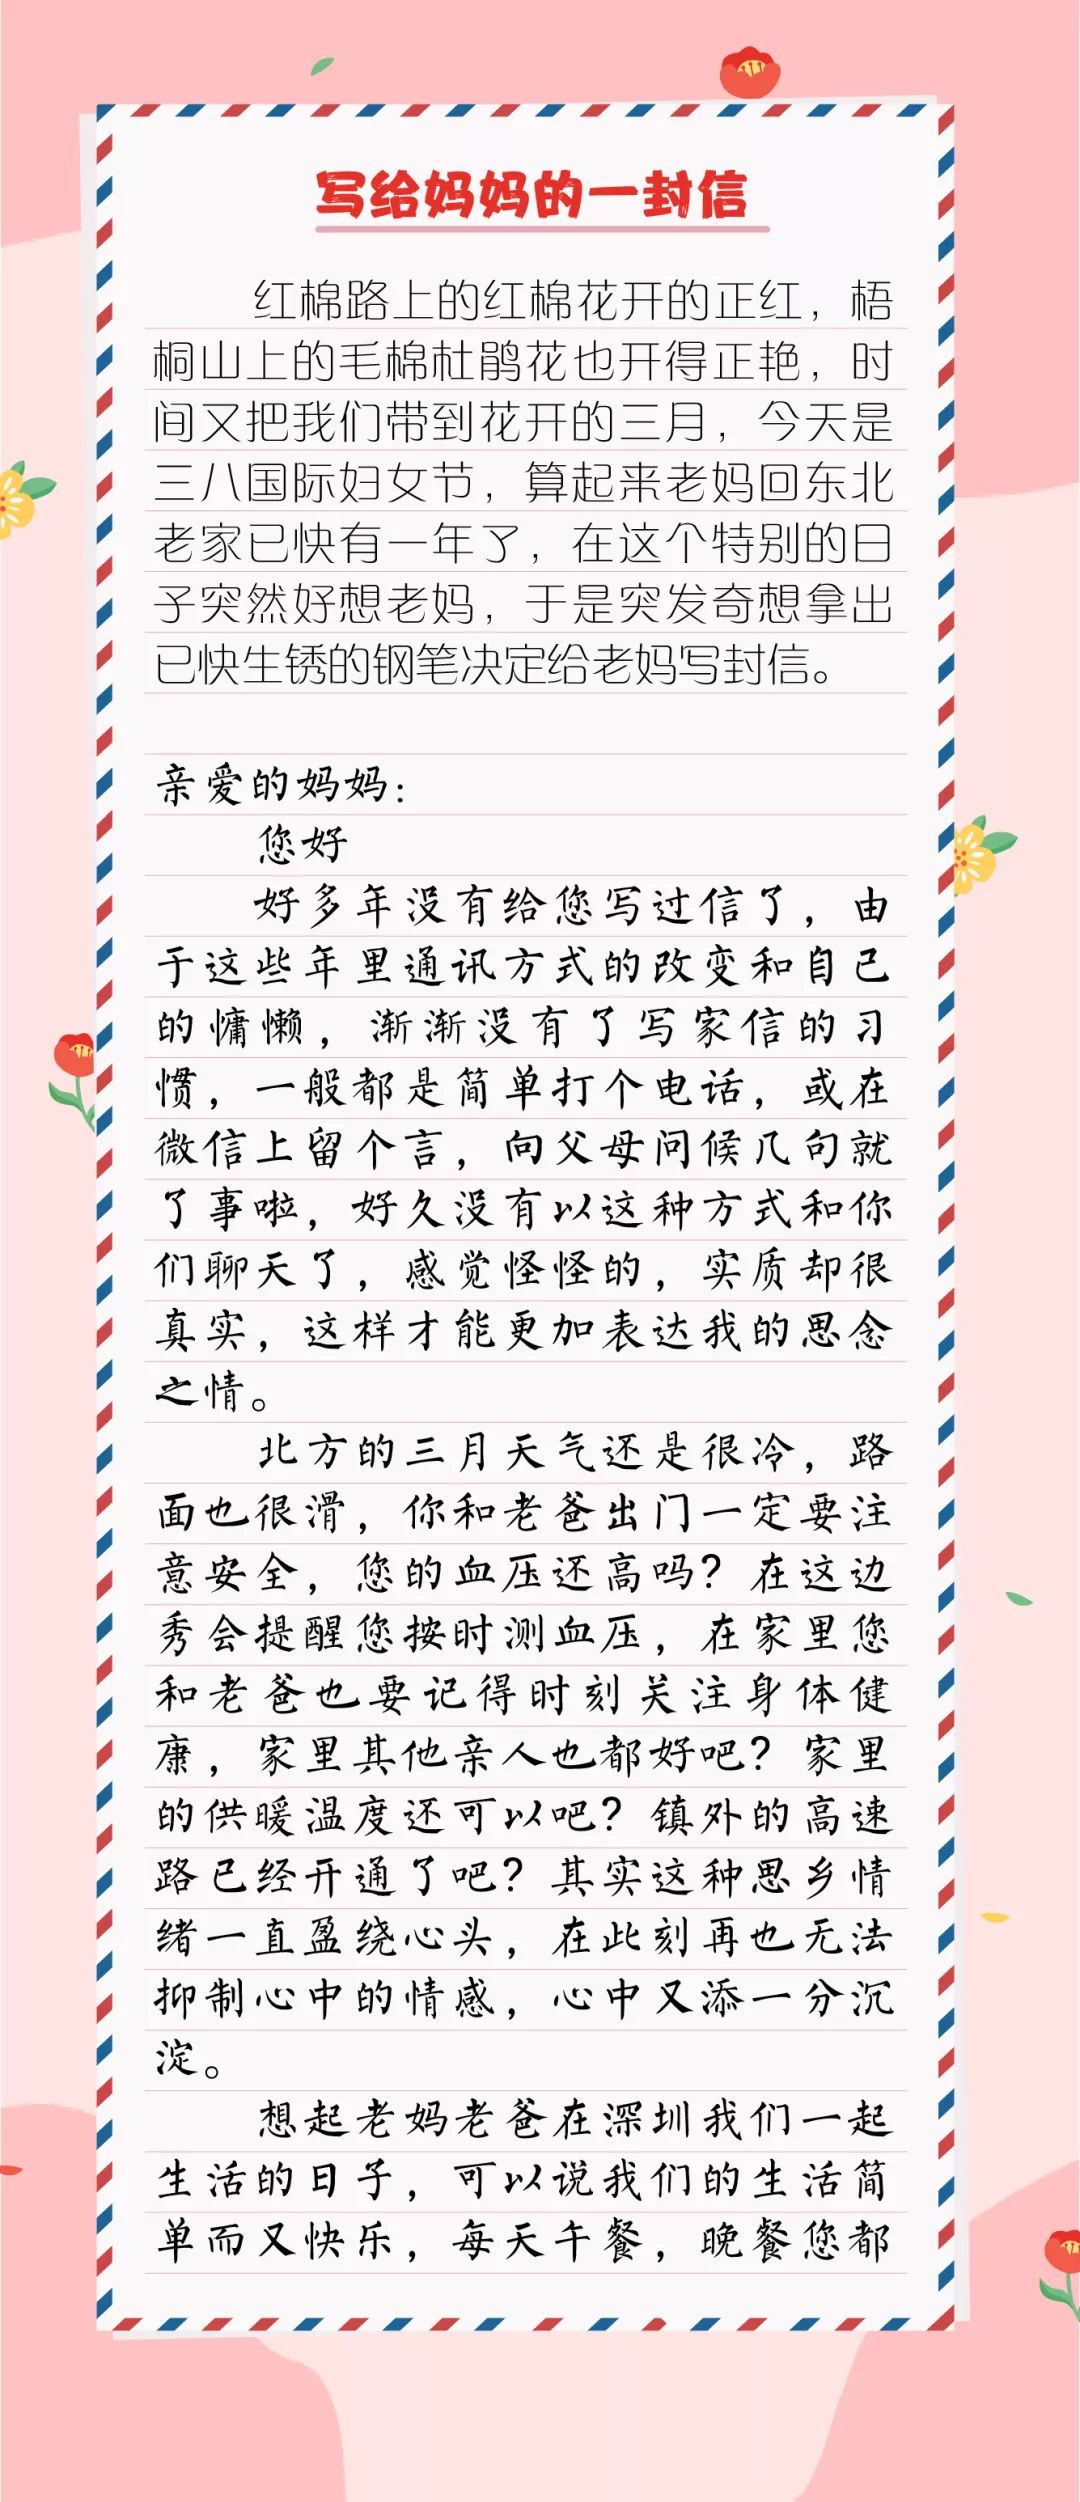 写给妈妈的一封信
红棉路上的红棉花开的正红，梧
桐山上的毛棉杜鹃花也开得正艳，时
间又把我们带到花开的三月，今天是
三八国际妇女节，算起来老妈回东北
老家已快有一年了，在这个特别的日
子突然好想老妈，于是突发奇想拿出
已快生锈的钢笔决定给老妈写封信。
亲爱的妈妈：
您好
好多年没有给您写过信了，由
于这些年里通讯方式的改变和自己
的慵懒，渐渐没有了写家信的习
惯，一般都是简单打个电话，或在
微信上留个言，向父母问候几句就
了事啦，好久没有以这种方式和你
们聊天了，感觉怪怪的，实质却很
真实，这样才能更加表达我的思念
之情。
北方的三月天气还是很冷，路
面也很滑，你和老爸出门一定要注
意安全，您的血压还高吗？在这边
秀会提醒您按时测血压，在家里您
和老爸也要记得时刻关注身体健
康，家里其他亲人也都好吧？家里
的供暖温度还可以吧？镇外的高速
路已经开通了吧？其实这种思乡情
绪一直盈绕心头，在此刻再也无法
抑制心中的情感，心中又添一分沉
淀。
想起老妈老爸在深圳我们一起
生活的日子，可以说我们的生活简
单而又快乐，每天午餐，晚餐您都